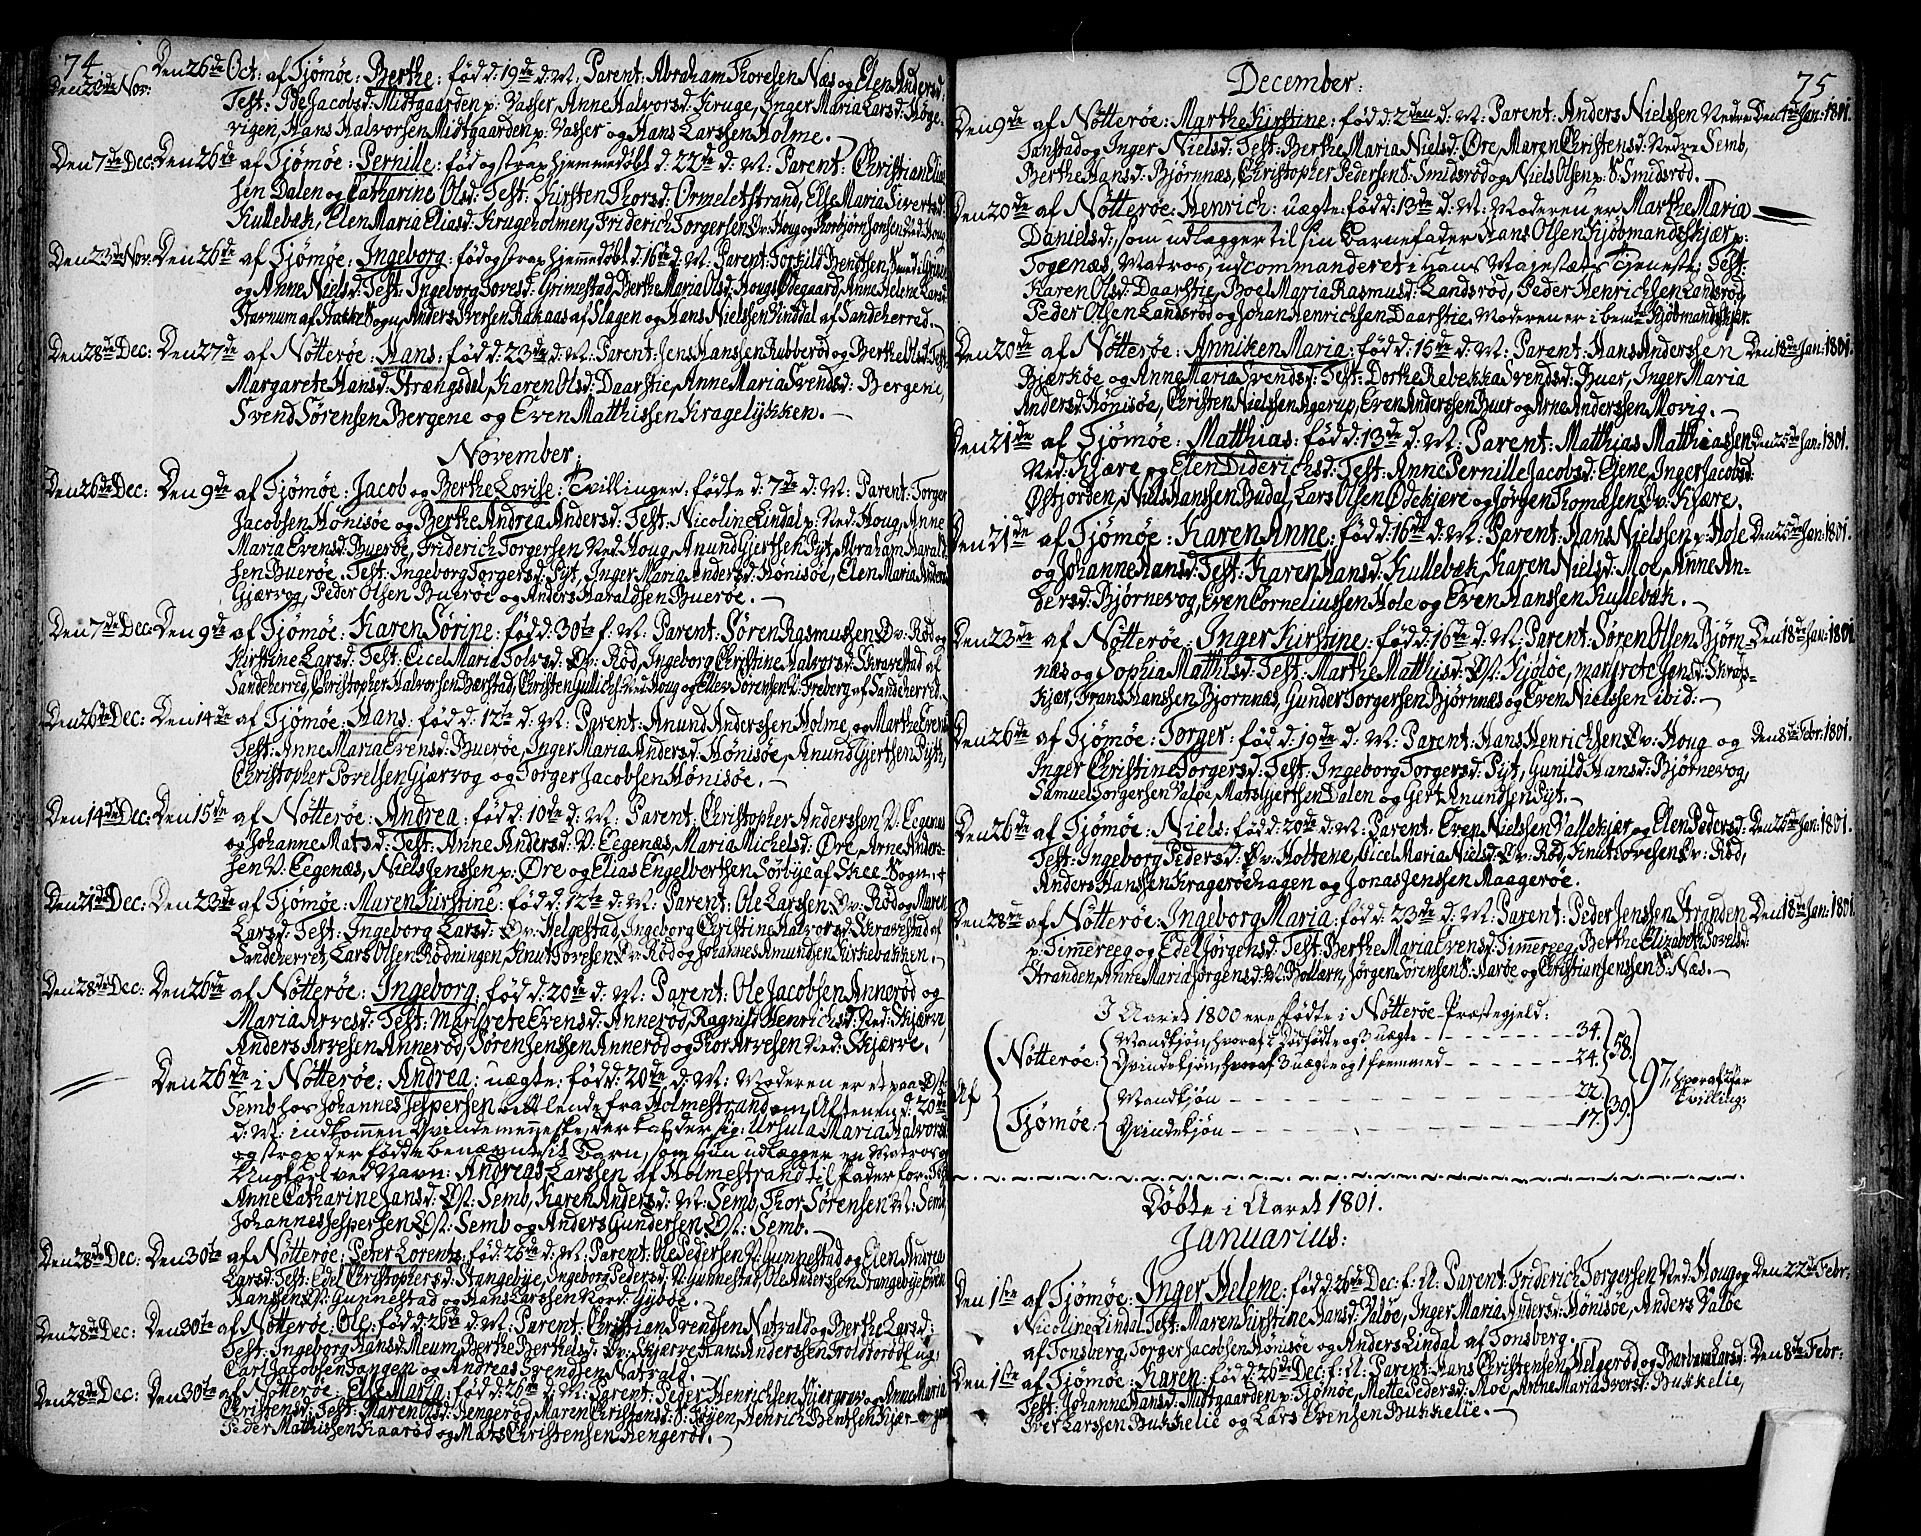 74
Den 26de Oct: af Tjømøe: Berthe: fød d: 19de d: M: Parent: Abraham Thoresen Næs og Elen Andersd.
Den 23de Nov:
Test: Ide Jacobsd: Midtgaarden p: Vasser, Anne Halvorsd: Kruge, Inger Maria Larsd: Høge-
vigen, Hans Halvorsen Midtgaarden p: Vasser og Hans Larssen Holme.
Den 7de Dec: Den 26de af Tjømøe: Pernille: fød og strax hjemmedøbt d: 22de d: M: Parent: Christian Elias-
sen Dalen og Catharine Olsd: Test: Kirsten Thorsd: Ormeletstrand, Else Maria Sivertsd:
Kullebæk, Elen Maria Eliasd: Krugeholmen, Friderich Torgersen Øv: Houg og Torbjørn Jonsen Ned: Houg
Den 23de Nov: Den 26de af Tjømøe: Ingeborg: fød og strax hjemmedøbt d: 16de d: M: Parent: Torkild Bendtsen
og Anne Nielsd: Test: Ingeborg Tovesd: Grimestad, Berthe Maria Olsd: Hougs Ødegaard, Anne Helene Larsd:
Anders Iversen Rakaas af Slagen og Hans Nielssen Vinddal af Sandeherred.
Den 28de Dec: Den 27de af Nøtterøe: Hans: fød d: 23de d: M: Parent: Jens Hanssen Rubberød og Berthe Olsd: Test:
Margarete Hansd: Strængsdal, Karen Olsd: Daarstie, Anne Maria Svendsd: Bergene,
Svend Sørensen Bergene og Even Matthissen Kragelykken.
November:
Den 26de Dec: Den 9de af Tjømøe: Jacob og Berthe Lovise: Tvillinger, fødte d: 7de d: M: Parent: Torger
Jacobsen Hønisøe og Berthe Andrea Andersd: Test: Nicoline Lindal p: Ned: Houg, Anne
Maria Evensd: Buerøe, Friderich Torgersen Ned: Houg, Anund Gjertsen Pyt, Abraham Harald-
sen Buerøe. Test: Ingeborg Torgersd: Pyt, Inger Maria Andersd: Hønisøe, Elen Maria Andersd:
Gjærvog, Peder Olsen Buerøe og Anders Haraldsen Buerøe.
Den 7de Dec: Den 9de af Tjømøe: Karen Sørine: fød d: 30te f: M: Parent: Søren Rasmussen Øv: Rød og
Kirstine Larsd: Test: Cicel Maria Tolvsd: Øv: Rød, Ingeborg Christine Halvorsd: Skravestad af
Sandeherred, Christopher Halvorsen Bærstad, Christen Gullichs: Ned: Houg og Ellev Sørensen V: Freberg af Sandeherred.
Den 26de Dec: Den 14de af Tjømøe: Hans: fød d: 12te d: M: Parent: Anund Anderssen Holme, og Marthe Evensd:
Test: Anne Maria Evensd: Buerøe, Inger Maria Andersd: Hønisøe, Anund Gjertsen Pyth,
Christopher Povelsen Gjærvog og Torger Jacobsen Hønisøe.
Den 14de Dec: Den 15de af Nøtterøe: Andrea: fød d: 10de d: M: Parent: Christopher Anderssen V: Eegenæs
og Johanne Matsd: Test: Anne Andersd: V: Eegenæs, Maria Michelsd: Øre, Arne Anders-
sen V: Eegenæs, Niels Jenssen p: Øre og Elias Engelbertsen Sørbye af Skee Sogn.
Den 21de Dec: Den 23de af Tjømøe: Maren Kirstine: fød d: 12te d: M: Parent: Ole Larssen Øv: Rød og Maren
Larsd: Test: Ingeborg Larsd: Øv: Helgestad, Ingeborg Christine Halvorsd: Skravestad af
Sandeherret, Lars Olsen Rødningen, Knut Tovesen Øv: Rød og Johannes Amundsen Kirkebakken.
Den 28de Dec: Den 26de af Nøtterøe: Ingeborg: fød d: 20de d: M: Parent: Ole Jacobsen Annerød og
Maria Arvesd: Test: Margrete Evensd: Annerød, Ragnild Henrichsd: Ned: Skjærve,
Anders Arvesen Annerød, Søren Jenssen Annerød og Thor Arvesen Ned: Skjærve.
Den 26de i Nøtterøe: Andrea: uægte: fød d: 20de d: M: Moderen er et paa Øst:
Semb hos Johannes Jespersen betlende fra Holmestrand om Aftenen d: 20de
d: M: indkommen Qvindemenneske, der kalder sig: Ursula Maria Halvorsd:
og strax der fødte benævnte sit Barn, som hun udlægger en Matros og
Ungkarl ved Navn: Andreas Larssen af Holmestrand til Fader for: Test:
Anne Catharine Jansd: Øst: Semb, Karen Andersd: M: Semb, Thor Sørensen M: Semb,
Johannes Jespersen Øst: Semb og Anders Gundersen Øst: Semb.
Den 28de Dec: Den 30te af Nøtterøe: Peter Lorents: fød: 26de d: M: Parent: Ole Pedersen V: Gunnestad og Elen Andrea
Larsd: Test: Edel Christophersd: Stangebye, Ingeborg Pedersd: V: Gunnestad, Ole Anderssen Stangebye, Even
Hanssen Øst: Gunnestad og Hans Larssen Nord: Gyboe.
Den 28de Dec: Den 30te af Nøtterøe: Ole: fød d: 26de d: M: Parent: Christian Svendsen Natvald og Berthe Larsd:
Test: Ingeborg Hansd: Meum, Berthe Berthelsd: Øv: Skjærve, Hans Anderssen
Carl Jacobsen Tangen og Andreas Svendsen Natvald.
Den 28de Dec: Den 30te af Nøtterøe: Else Maria: fød d: 26de d: M: Parent: Peder Henrichsen og Anne Maria
Christensd: Test: Maren Olsd: Hengerød, Maren Christensd: Henrich Bentsen Kjær
Peder Mathissen Kaarød og Mats Christensen Hengerød.
75
December:
Den 9de af Nøtterøe: Marthe Kirstine: fød d: 2den d: M: Parent: Anders Nielssen Nedre Den 4de Jan: 1801.
Tanstad og Inger Nielsd: Test: Berthe Maria Nielsd: Øre, Maren Christensd: Nedre Semb,
Berthe Hansd: Bjørnnæs, Christopher Pedersen S: Smidsrød og Niels Olsen p: S: Smidsrød.
Den 20de af Nøtterøe: Henrich: uægte: fød d: 13de d: M: Moderen er Marthe Maria
Danielsd:, som udlægger til sin Barnefader Hans Olsen Kjøbmandsskjær p:
Togenæs, Matros, udcommanderet i Hans Majestæts Tjeneste; Test:
Karen Olsd: Daarstie, Boel Maria Rasmusd: Landsrød, Peder Henrichsen Landsrød,
Peder Olsen Landsrød og Johan Henrichsen Daarstie. Moderen er i bemte Kjøbmandskjær.
Den 20de af Nøtterøe: Anniken Maria: fød d: 15de d: M: Parent: Hans Anderssen Den 18de Jan: 1801.
Bjærkøe og Anne Maria Svendsd: Test: Dorthe Rebekka Svendsd: Buer, Inger Maria
Andersd: Hønisøe, Christen Nielssen Agerup, Even Anderssen Buer og Arne Anderssen Movig.
Den 21de af Tjømøe: Matthias: fød d: 13de d: M: Parent: Matthias Matthiassen Den 25de Jan: 1801.
Ned: Kjære og Elen Diderichsd: Test: Anne Pernille Jacobsd: Eiene, Inger Jacobsd:
Østjorden, Niels Hanssen Budal, Lars Olsen Ødekjære og Jørgen Thomæsen Øv: Kjære.
Den 21de af Tjømøe: Karen Anne: fød d: 16de d: M: Parent: Hans Nielssen p: Hole Den 25de Jan: 1801.
og Johanne Hansd: Test: Karen Hansd: Kullebæk, Karen Nielsd: Moe, Anne An-
dersd: Bjørnevog, Even Corneliussen Hole og Even Hanssen Kullebæk.
Den 23de af Nøtterøe: Inger Kirstine: fød d: 16de d: M: Parent: Søren Olsen Bjørn- Den 18de Jan: 1801
næs og Sophia Mathisd: Test: Marthe Matthisd: Øst: Kjøløe, Margrete Jensd: Skrap-
kjær, Frans Hanssen Bjørnnæs, Gunder Torgersen Bjørnnæs og Even Nielssen ibid:
Den 26de af Tjømøe: Torger: fød d: 19de d: M: Parent: Hans Henrichsen Øv: Houg og Den 8de Febr: 1801.
Inger Christine Torgersd: Test: Ingeborg Torgersd: Pyt, Gunild Hansd: Bjørnevog,
Samuel Torgersen Valøe, Mats Gjertsen Dalen og Gert Anundsen Pyt.
Den 26de af Tjømøe: Niels: fød d: 20de d: M: Parent: Even Nielssen Vallekjær og Elen Pedersd: Den 25de Jan: 1801.
Test: Ingeborg Pedersd: Øv: Holtene, Cicel Maria Nielsd: Øv: Rød, Knut Tovesen Øv: Rød,
Anders Hanssen Kragerøehagen og Jonas Jenssen Maagerøe.
Den 28de af Nøtterøe: Ingeborg Maria: fød d: 23de d: M: Parent: Peder Jenssen Stranden Den 18de Jan: 1801.
p: Timereeg og Edel Jørgensd: Test: Berthe Maria Evensd: Timereeg, Berthe Elizabeth Povelsd:
Stranden, Anne Maria Jørgensd: M: Bollærn, Jørgen Sørensen S: Aarøe og Christian Jenssen S: Næs.
I Aaret 1800 ere fødte i Nøtterøe Præstegjeld:
Af Nøtterøe: Mandkjøn, hvoraf 2 dødfødte og 3 uægte - 34.
Qvindekjøn, hvoraf 3 uægte og 1 fremmed - 24. 58.
97, hvoraf 2 Par Tvilling:
Tjømøe: Mandkjøn - 22
Qvindekjøn - 17. 39.
Døbte i Aaret 1801.
Januarius:
Den 1ste af Tjømøe: Inger Helene: fød d: 26de Dec: f: A: Parent: Friderich Torgersen Ned: Houg og Den 22de Febr:
Nicoline Lindal Test: Maren Kirstine Hansd: Valøe, Inger Maria Andersd: Hønisøe, Anders Valøe
af Tonsberg, Torger Jacobsen Hønisøe og Anders Lindal af Tonsberg.
Den 1ste af Tjømøe: Karen: fød d: 26de Dec: f: A: Parent: Hans Christensen Helgerød og Barbara Larsd: Den 8de Febr:
Test: Johanne Hansd: Midtgaarden p: Tjømøe, Mette Pedersd: Moe, Anne Maria Iversd: Bukkelie,
Iver Larssen Bukkelie og Lars Evensen Bukkelie.